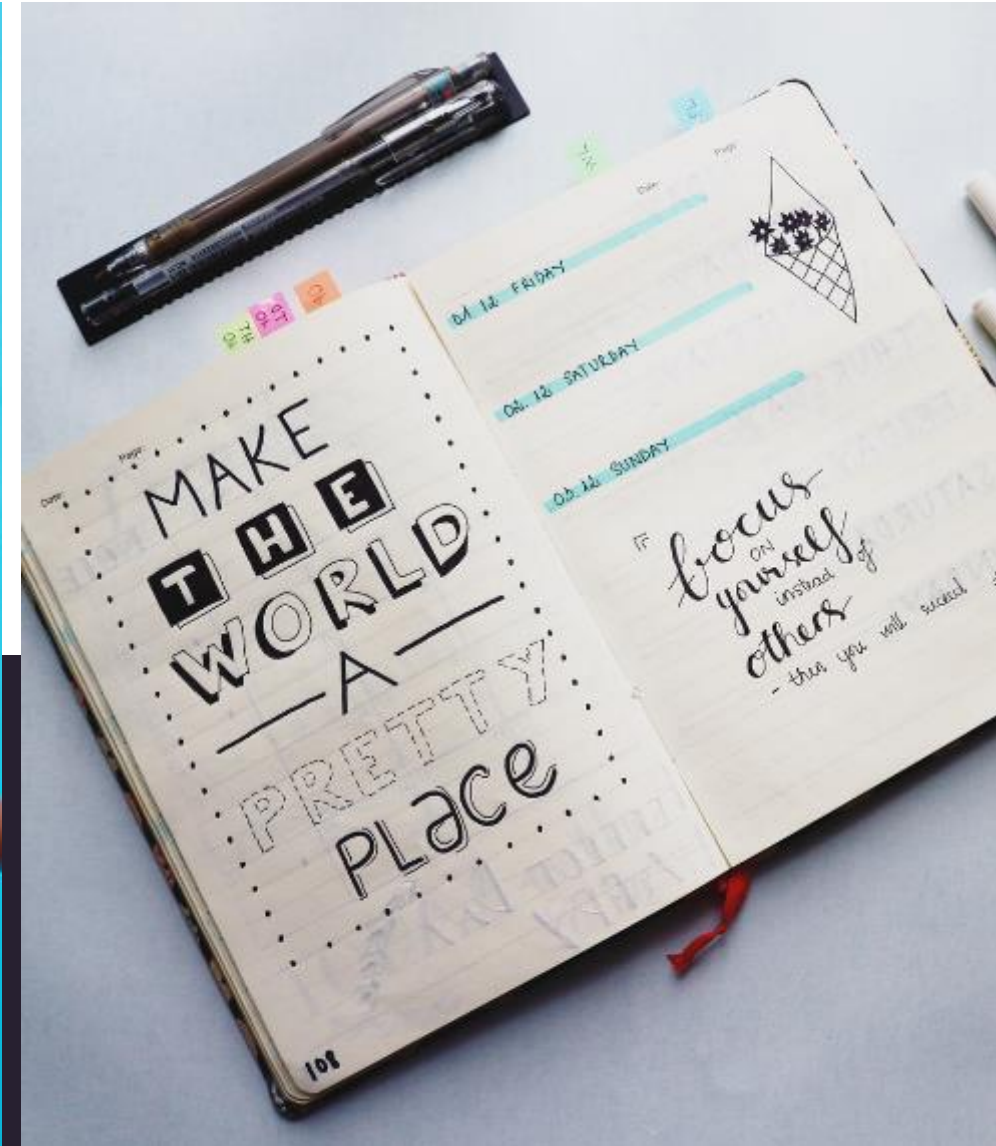 Date:
Page:
MAKE
THE
WORLD
A
PRETTY
PLace
108
Date:
Page:
01. 12. FRIDAY
02. 12. SATURDAY
03. 12. SUNDAY
focus
ON
yourself
instead of
others
- then you will